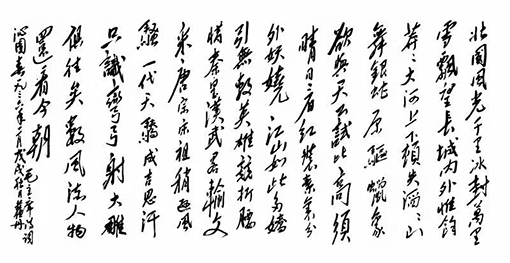 北國風光千里冰封萬里
雪飄望長城内外惟餘
莽々大河上下頓失滔々山
舞銀蛇原驅蠟象
欲與天公試比高須
晴日看紅裝素裹分
外妖嬈江山如此多嬌
引無數英雄競折腰
惜秦皇漢武畧輸文
采唐宗宋祖稍遜風
騷一代天驕成吉思汗
只識彎弓射大雕
俱往矣數風流人物
還看今朝
沁園春一九三六年二月戊戌 毛主席詩詞